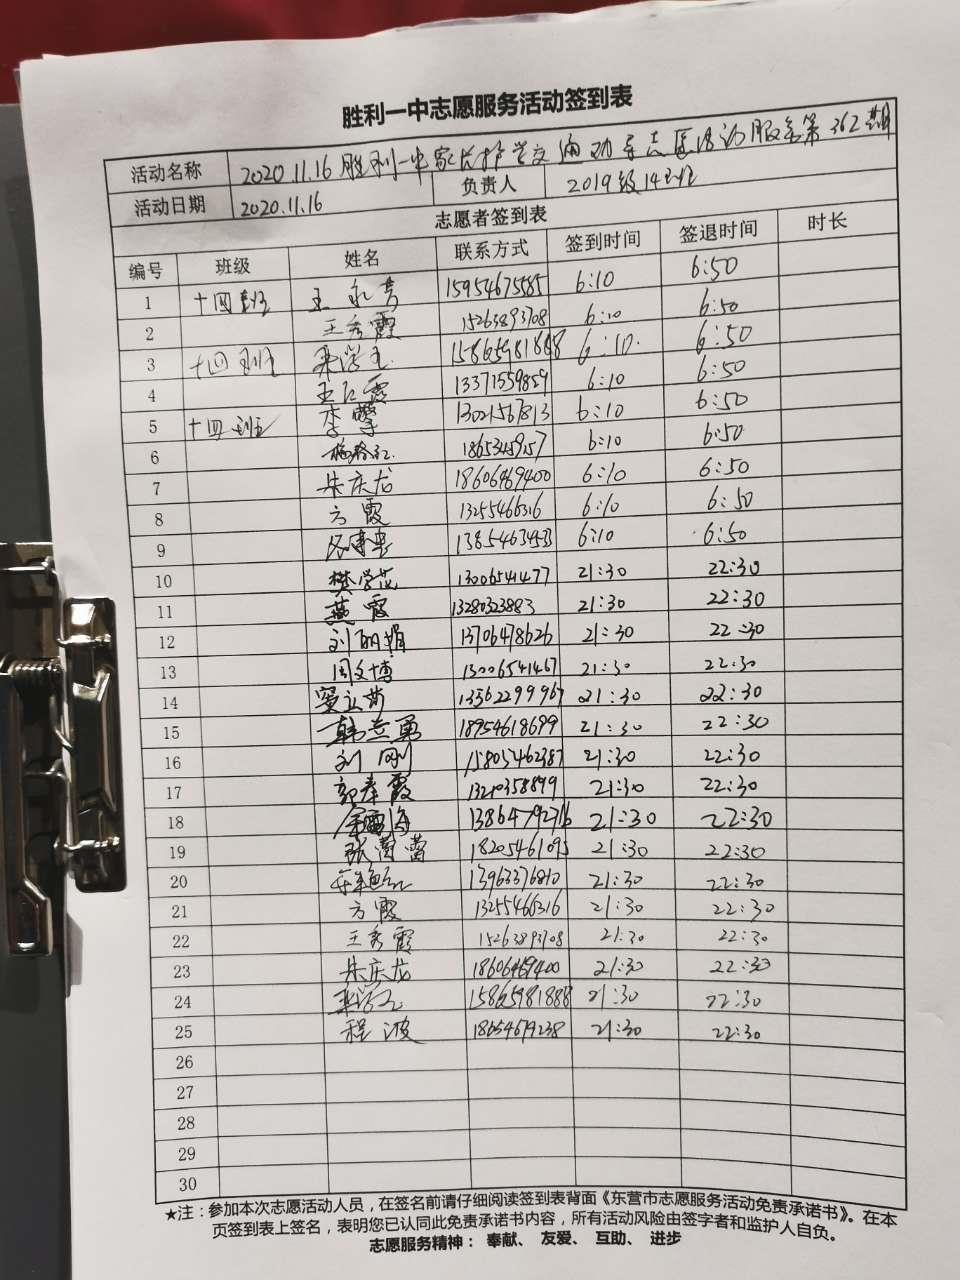 胜利一中志愿服务活动签到表
活动名称 2020.11.16 胜利一中家长护学交通劝导志愿活动服务第362期
活动日期 2020.11.16 负责人 2019级14班
志愿者签到表
编号 班级 姓名 联系方式 签到时间 签退时间 时长
1 十四班 王 15954675585 6:10 6:50
2 王秀霞 15263893708 6:10 6:50
3 十四班 15865981888 6:10 6:50
4 王红霞 13371559859 6:10 6:50
5 十四班 李 13021567813 6:10 6:50
6 6:10 6:50
7 朱庆龙 18606469400 6:10 6:50
8 方霞 13255466316 6:10 6:50
9 13854634533 6:10 6:50
10 樊学花 13006541477 21:30 22:30
11 燕霞 13280323883 21:30 22:30
12 刘丽娟 13706478626 21:30 22:30
13 周文博 13006541467 21:30 22:30
14 窦立 13562299967 21:30 22:30
15 韩立勇 18954618699 21:30 22:30
16 刘刚 15805462387 21:30 22:30
17 郭春霞 13210358899 21:30 22:30
18 13864792716 21:30 22:30
19 张蕾蕾 18205461095 21:30 22:30
20 13963376810 21:30 22:30
21 方霞 13255466316 21:30 22:30
22 王秀霞 15263893708 21:30 22:30
23 朱庆龙 18606469400 21:30 22:30
24 15865981888 21:30 22:30
25 程波 18654679238 21:30 22:30
26
27
28
29
30
★注：参加本次志愿活动人员，在签名前请仔细阅读签到表背面《东营市志愿服务活动免责承诺书》。在本
页签到表上签名，表明您已认同此免责承诺书内容，所有活动风险由签字者和监护人自负。
志愿服务精神： 奉献、 友爱、 互助、 进步